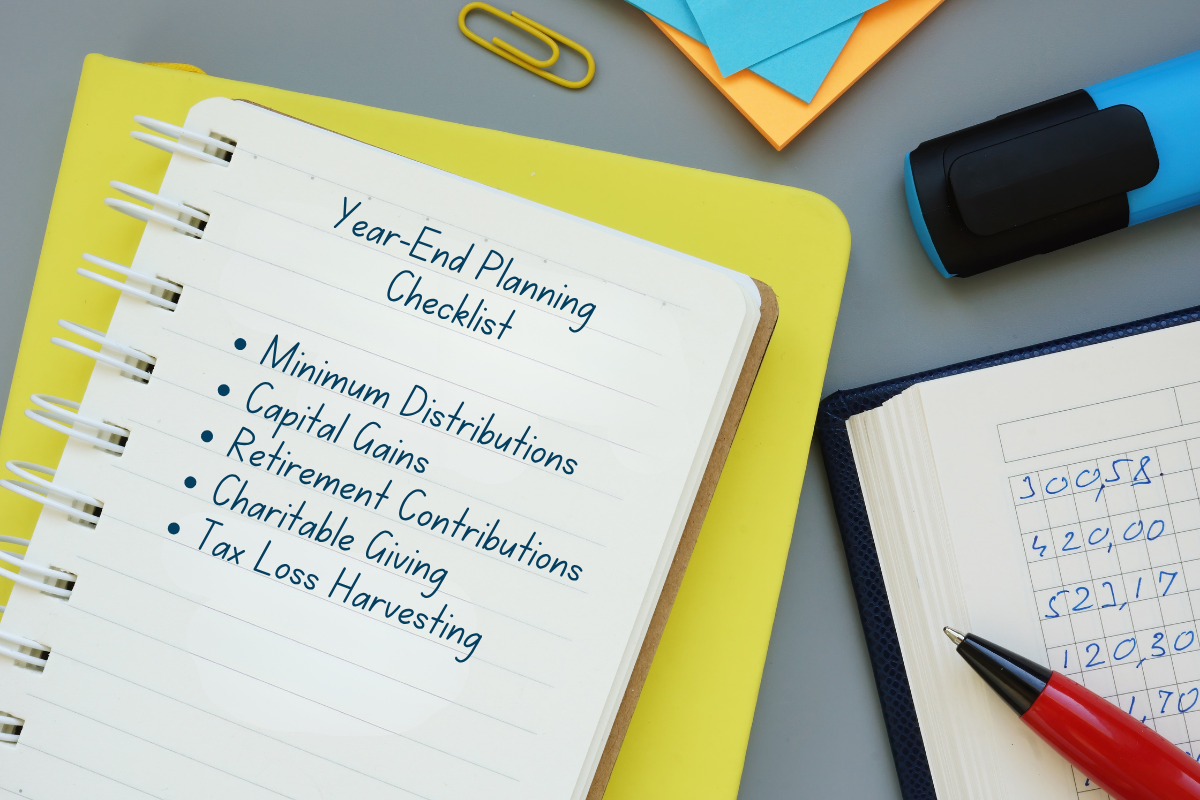 Year-End Planning
Checklist
• Minimum Distributions
• Capital Gains
• Retirement Contributions
• Charitable Giving
• Tax Loss Harvesting
300,58.
420,00
523,17
120,30
1,70